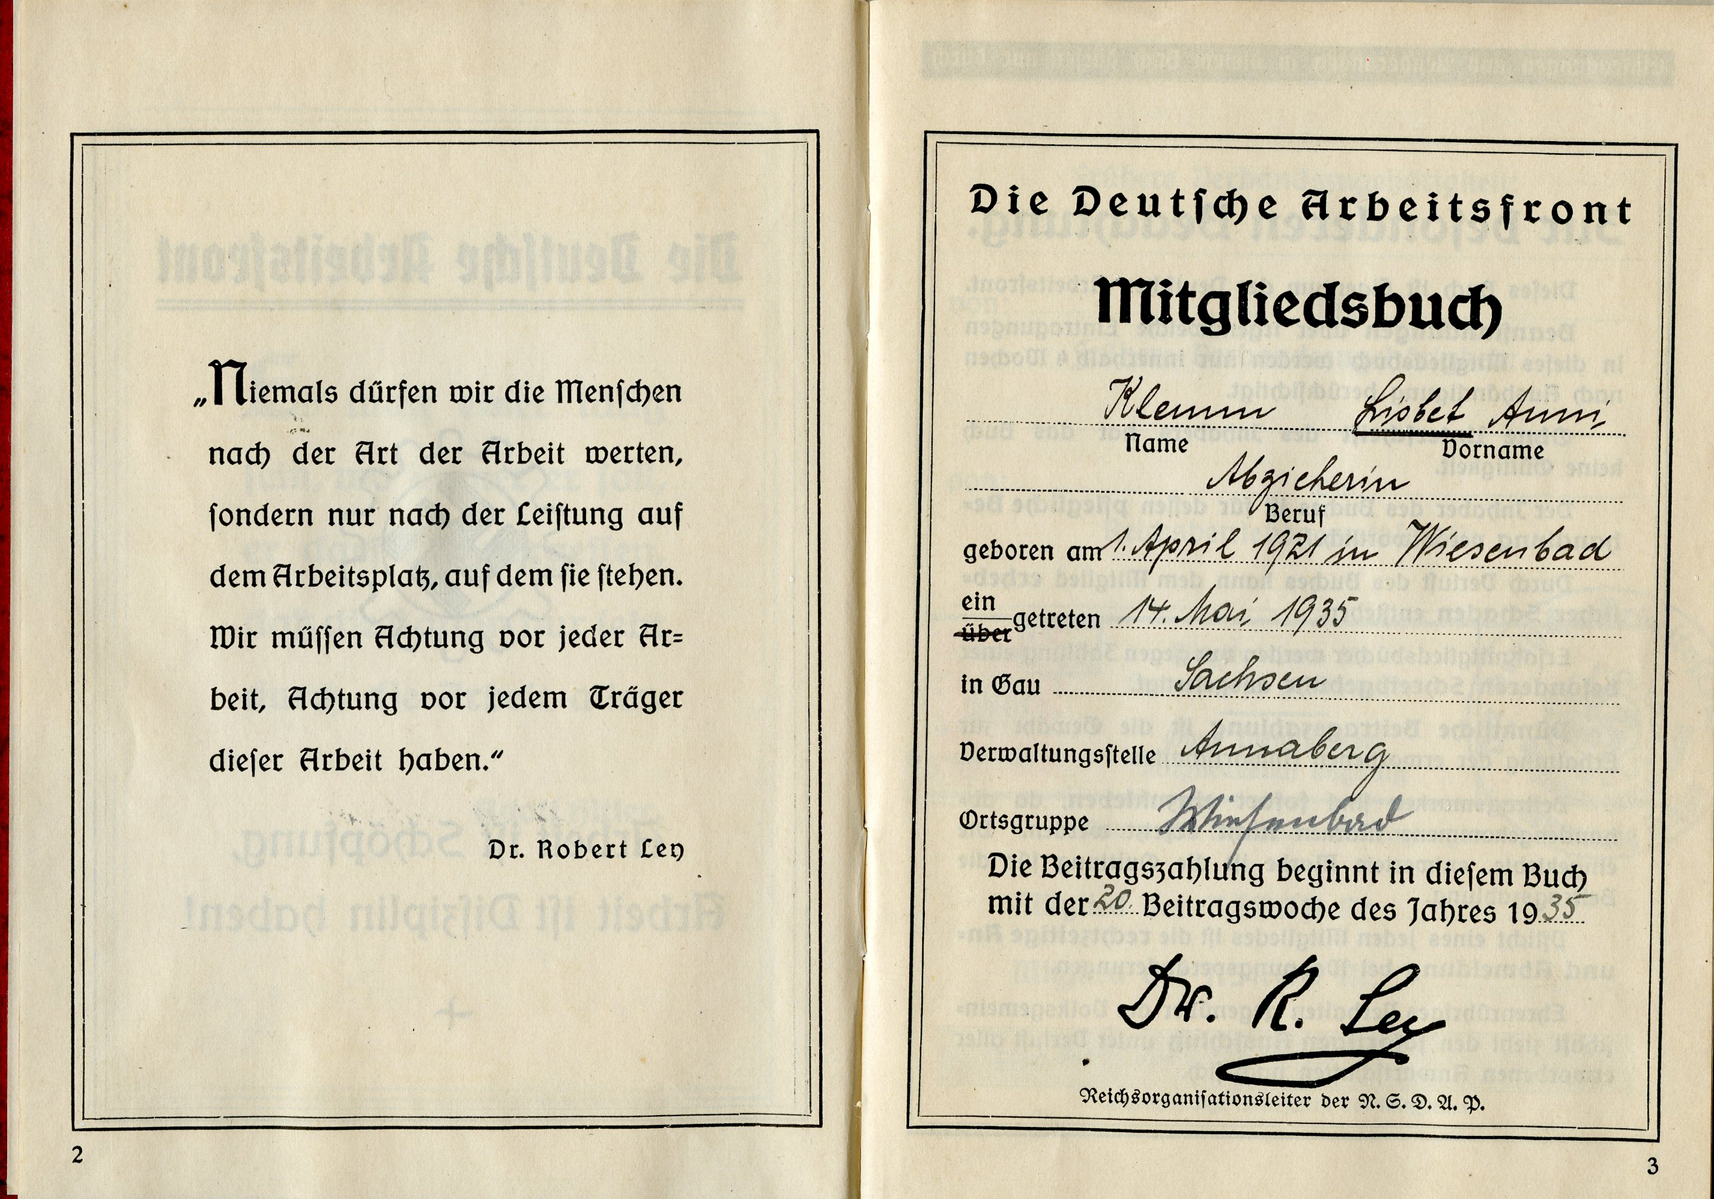 „Niemals dürfen wir die Menschen
nach der Art der Arbeit werten,
sondern nur nach der Leistung auf
dem Arbeitsplatz, auf dem sie stehen.
Wir müssen Achtung vor jeder Ar=
beit, Achtung vor jedem Träger
dieser Arbeit haben.“
Dr. Robert Ley
2
Die Deutsche Arbeitsfront
Mitgliedsbuch
Klemm Lisbet Anni
Name Vorname
Abzieherin
Beruf
geboren am 1. April 1921 in Wiesenbad
ein
über getreten 14. Mai 1935
in Gau Sachsen
Verwaltungsstelle Annaberg
Ortsgruppe Wiesenbad
Die Beitragszahlung beginnt in diesem Buch
mit der 20 Beitragswoche des Jahres 1935
Dr. R. Ley
Reichsorganisationsleiter der N. S. D. A. P.
3